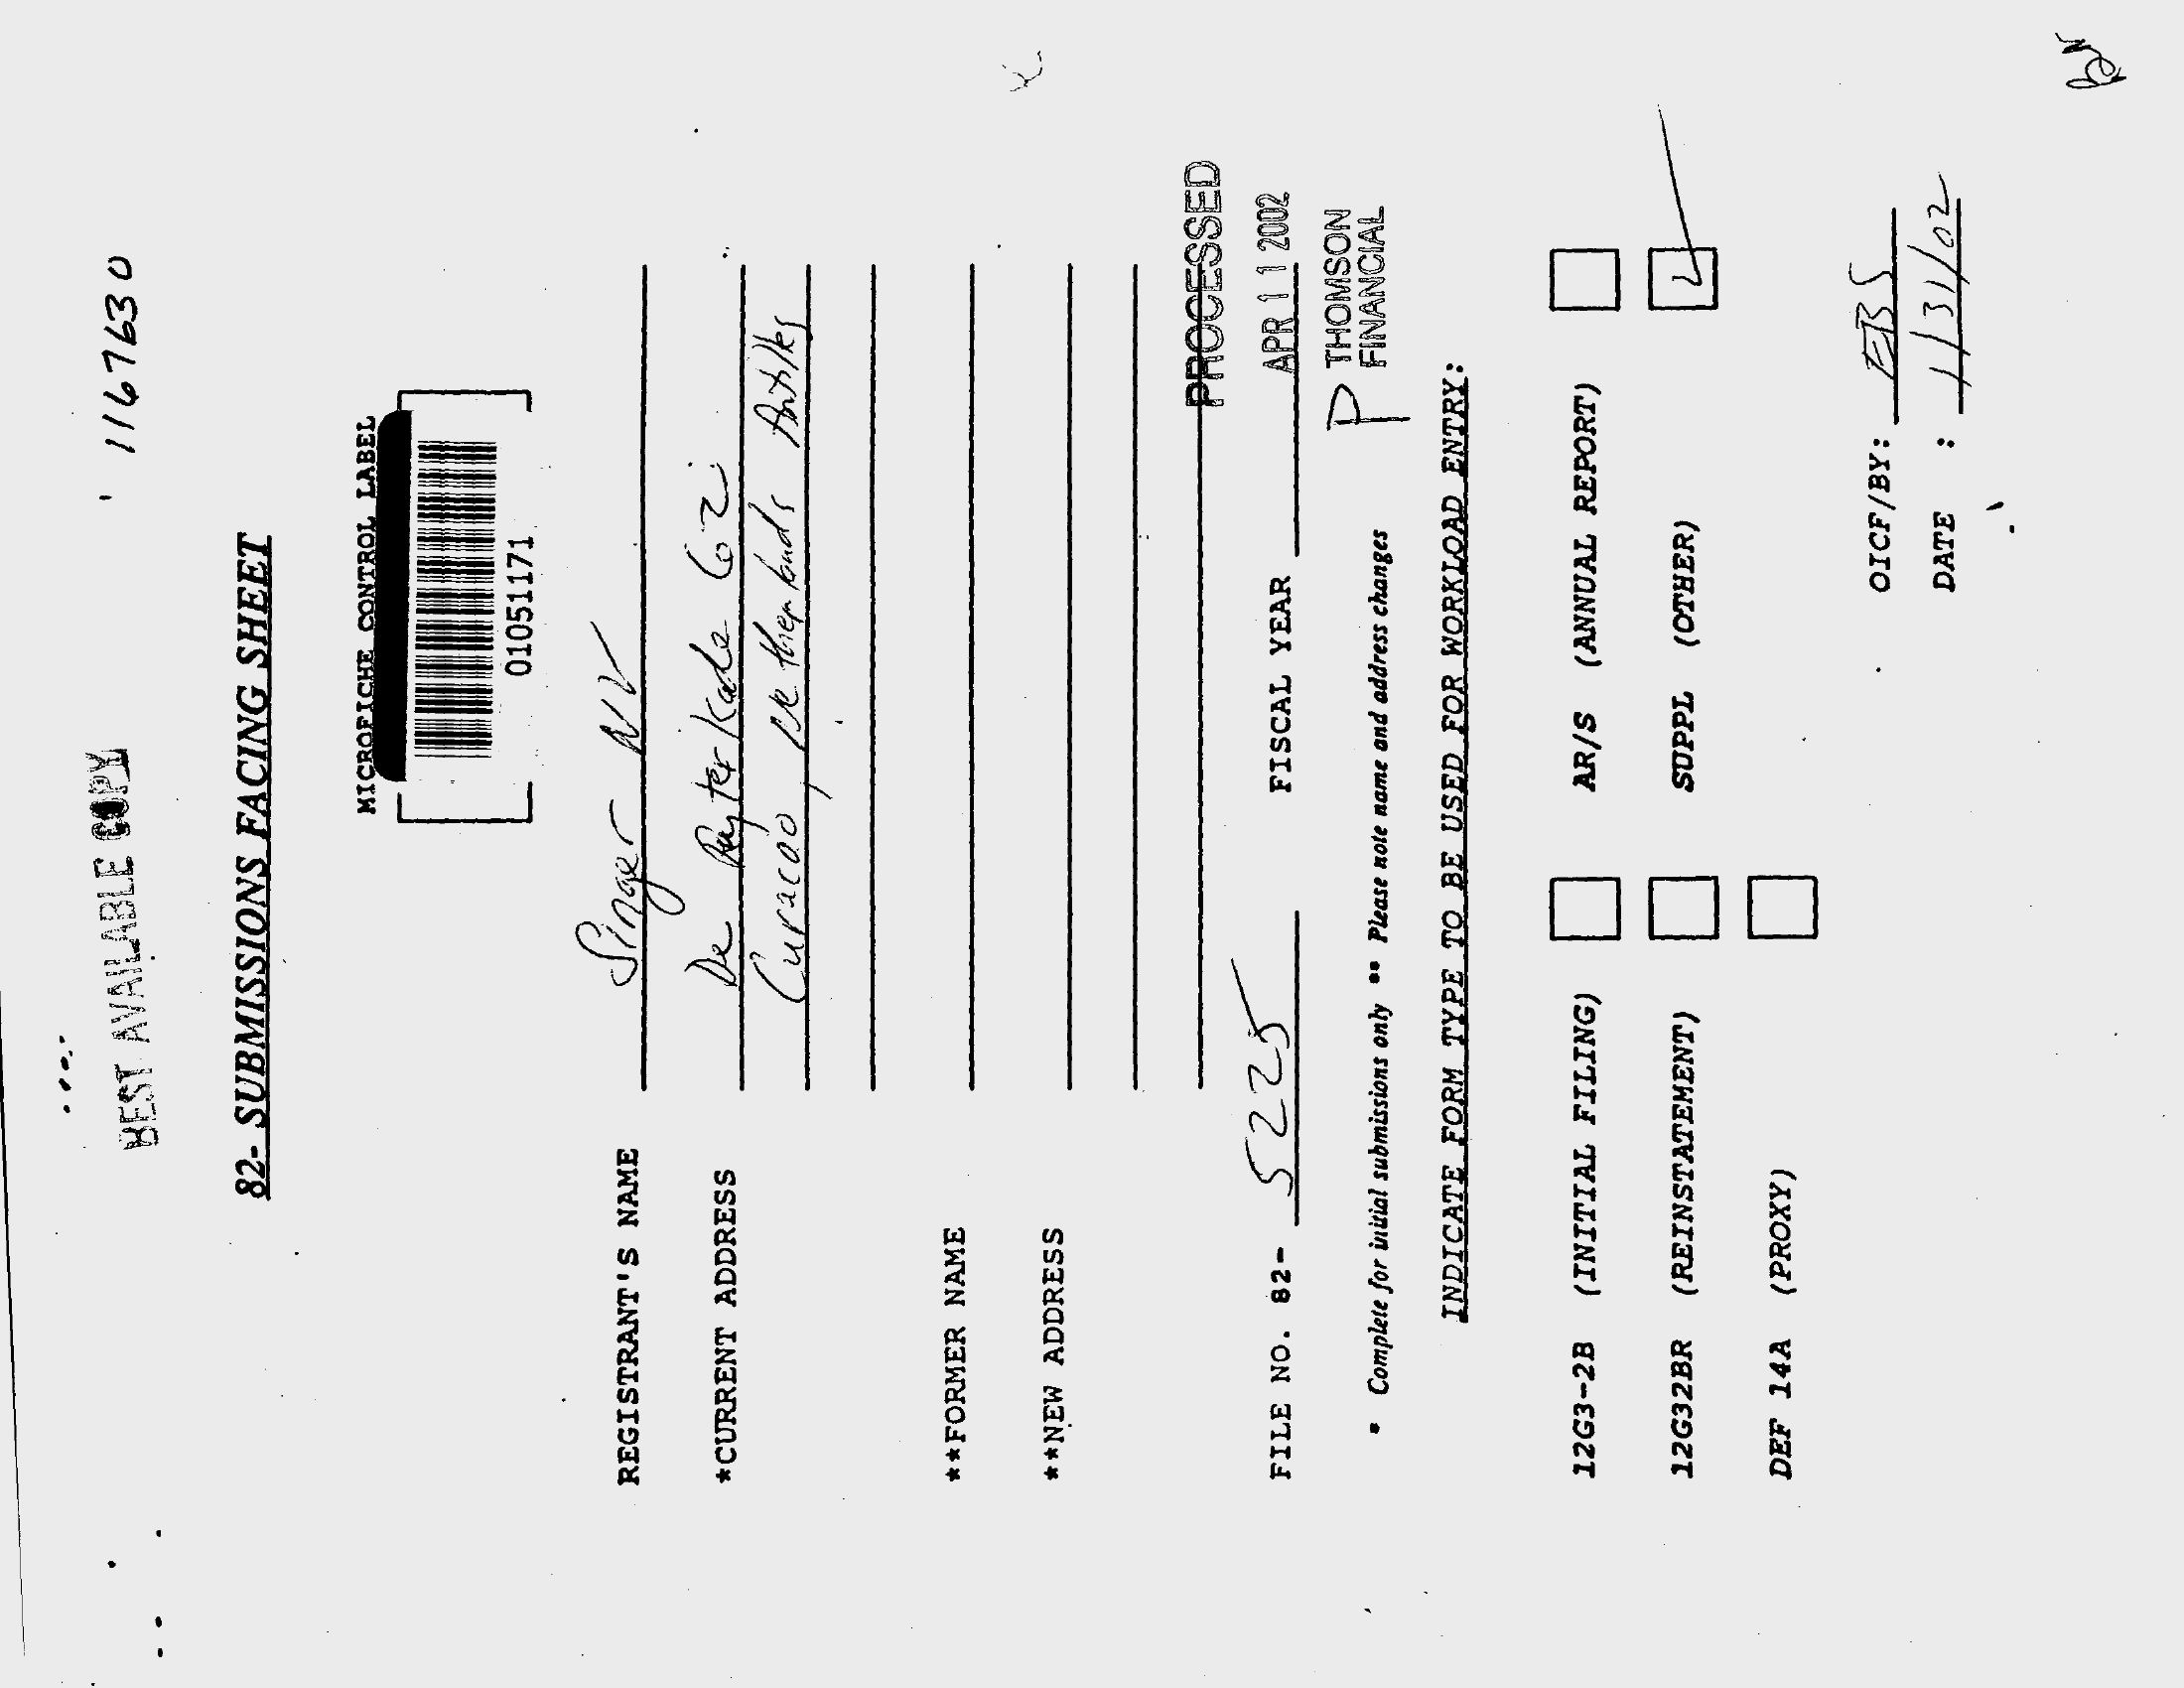 1167630
BEST AVAILABLE COPY
82- SUBMISSIONS FACING SHEET
MICROFICHE CONTROL LABEL
01051171
REGISTRANT'S NAME Singer NV
*CURRENT ADDRESS De Ruyterkade 62
Curacao, Netherlands Antilles
**FORMER NAME
**NEW ADDRESS
PROCESSED
FILE NO. 82- 5225 FISCAL YEAR APR 11 2002
P THOMSON
FINANCIAL
* Complete for initial submissions only ** Please note name and address changes
INDICATE FORM TYPE TO BE USED FOR WORKLOAD ENTRY:
12G3-2B (INITIAL FILING) AR/S (ANNUAL REPORT)
12G32BR (REINSTATEMENT) SUPPL (OTHER)
DEF 14A (PROXY)
OICF/BY: EBS
DATE : 1/31/02